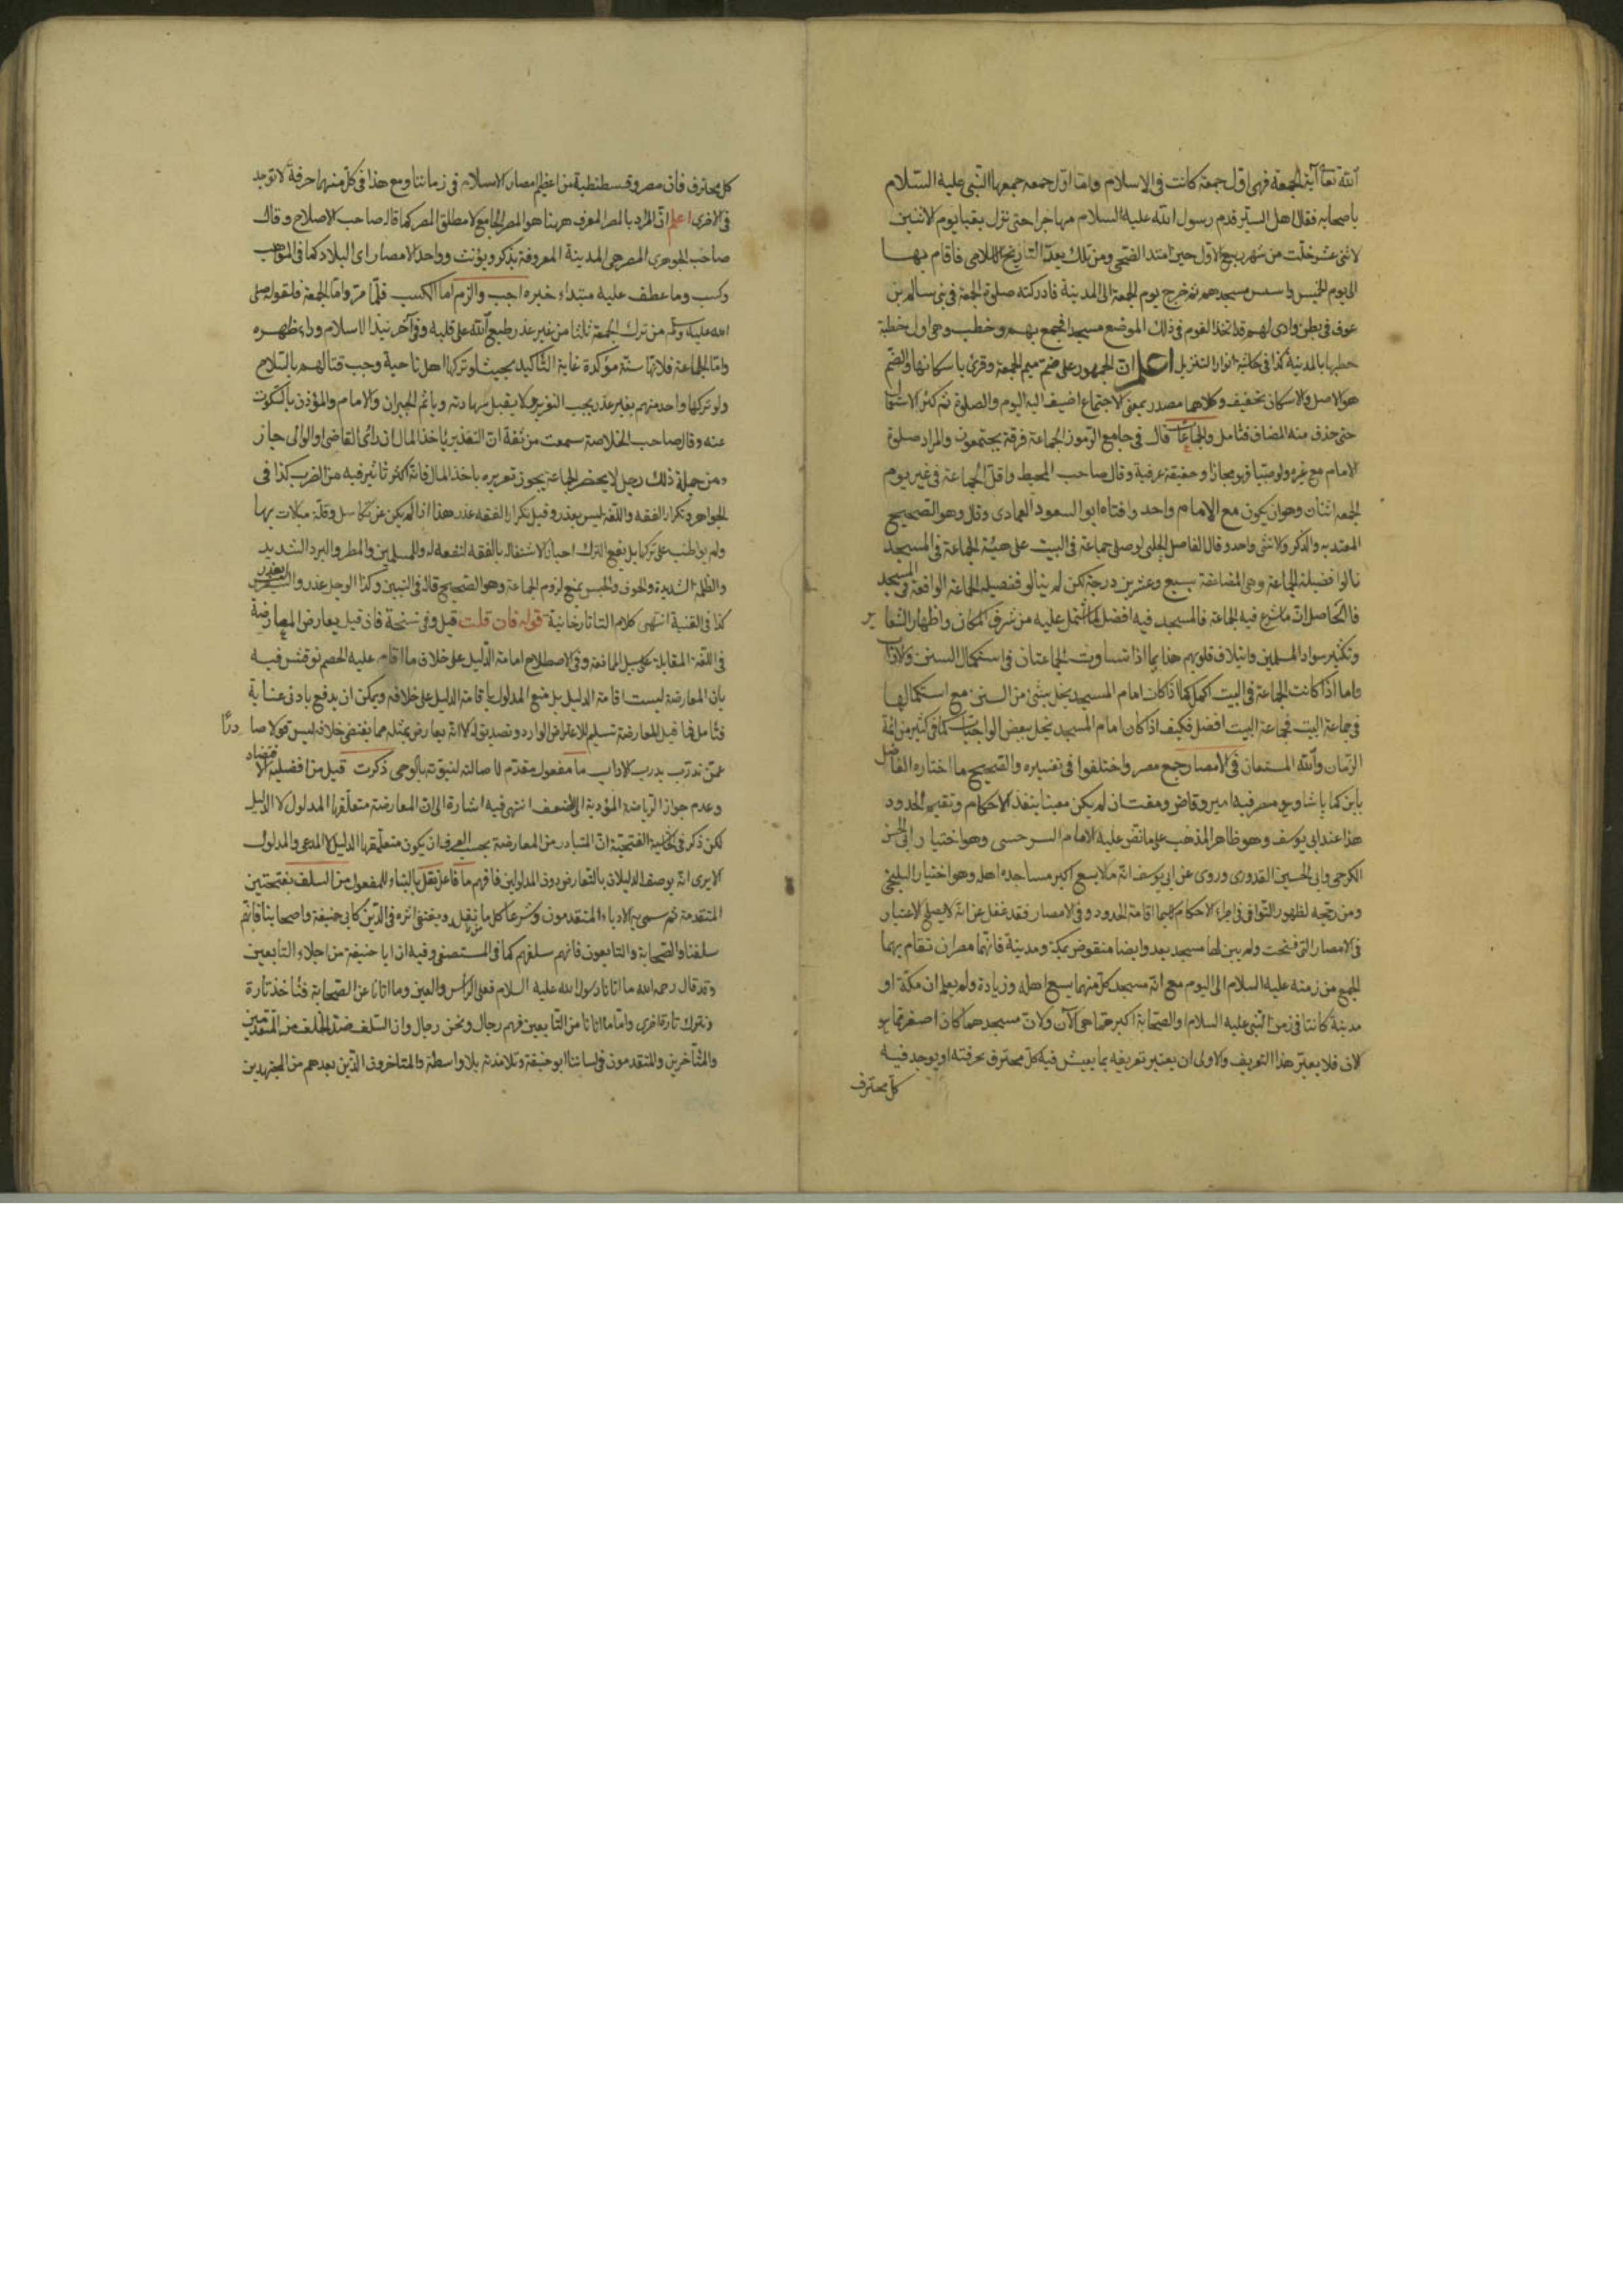 الله تعالى آية الجمعة فهى اول جمعة كانت فى الاسلام واما اول جمعة جمعها النبى عليه السلام
باصحابه فقال اهل السير قدم رسول الله عليه السلام مهاجرا حتى نزل بقبا يوم الاثنين
لاثنى عشر خلت من شهر ربيع الاول حين امتد الضحى ومن تلك يعد التاريخ الاسلامى فاقام بها
الى يوم الخميس واسس مسجدهم ثم خرج يوم الجمعة الى المدينة فادركته صلوة الجمعة فى بنى سالم بن
عوف فى بطن وادى لهم قد اتخذ القوم فى ذلك الموضع مسجدا فجمع بهم وخطب وهى اول خطبة
خطبها بالمدينة كذا فى حاشية انوار التنزيل اعلم ان الجمهور على ضم ميم الجمعة وقرئ باسكانها والضم
هو الاصل والاسكان تخفيف وكلاهما مصدر بمعنى الاجتماع اضيف اليه اليوم والصلوة ثم كثر الاستعمال
حتى حذف منه المضاف فتامل والجماعات قال فى جامع الرموز الجماعة فرقة يجتمعون والمراد صلوة
الامام مع غيره ولو صبيا فهو مجازا وحقيقة عرفية وقال صاحب المحيط واقل الجماعة فى غير يوم
الجمعة اثنان وهو ان يكون مع الامام واحد وافتاه ابو السعود العمادى وقل وهو الصحيح
المعتد به والذكر والانثى واحد وقال الفاضل الحلبى لو صلى جماعة فى البيت على هيئة الجماعة فى المسجد
نالوا فضيلة الجماعة وهى المضاعفة بسبع وعشرين درجة لكن لم ينالوا فضيلة الجماعة الواقعة فى المسجد
فالحاصل ان ما شرع فيه الجماعة فالمسجد فيه افضل لما اشتمل عليه من شرف المكان واظهار الشعاير
وتكثير سواد المسلمين وايتلاف قلوبهم هذا بما اذا تساوت الجماعتان فى استكمال السنن والاداب
واما اذا كانت الجماعة فى البيت اكمل كما اذا كان امام المسجد يخل بشئ من السنن مع استكمالها
فى جماعة البيت فجماعة البيت افضل فكيف اذا كان امام المسجد يخل ببعض الواجبات كما فى كثير من ائمة
الزمان والله المستعان فى الامصار جمع مصر واختلفوا فى تفسيره والصحيح ما اختاره الفاضل
بابن كمال پاشا وهو مصر فيه امير وقاض ومفت ان لم يكن معينا ينفذ الاحكام وتقيم الحدود
هذا عند ابى يوسف وهو ظاهر المذهب على ما نص عليه الامام السرخسى وهو اختيار ابى الحسن
الكرخى وابى الحسين القدورى وروى عن ابى يوسف انه ما لا يسع اكبر مساجده اهله وهو اختيار البلخى
ومن رجحه لظهور التوانى فى اجراء الاحكام لا سيما اقامة الحدود فى الامصار فقد غفل عن انه لا يصلح لاعتبار
فى الامصار التى فتحت ولم يبن لها مسجد بعد وايضا منقوض بمكة ومدينة فانهما مصران تقام بهما
الجمع من زمنه عليه السلام الى اليوم مع انه مسجد كل منهما يسع اهله وزيادة ولم يعلم ان مكة او
مدينة كانتا فى زمن النبى عليه السلام والصحابة اكبر مما هى الآن ولا ان مسجدهما كان اصغر مما هو
الان فلا يعتبر هذا التعريف والاولى ان يعتبر تعريفه بما يعيش فيه كل محترف بحرفته او يوجد فيه
كل محترف
كل محترف فان مصر وقسطنطنية من اعظم امصار الاسلام فى زماننا ومع هذا فى كل منهما حرفة لا توجد
فى الاخرى اعلم ان المراد بالمصر المعرف ههنا هو المصر الجامع لا مطلق المصر كما قاله صاحب الاصلاح وقال
صاحب الجوهرى المصر هى المدينة المعروفة يذكر ويؤنث وواحد الامصار اى البلاد كما فى المواهب
وكسب وما عطف عليه مبتداء خبره اجب والزم اما الكسب فلما مر واما الجمعة فلقوله صلى
الله عليه وسلم من ترك الجمعة ثلاثا من غير عذر طبع الله على قلبه وفى آخر نبذ الاسلام وراء ظهره
واما الجماعة فلانها سنة مؤكدة غاية التأكيد بحيث لو تركها اهل ناحية وجب قتالهم بالسلاح
ولو تركها واحد منهم بغير عذر يجب التعزير ولا يقبل شهادته ويأثم الجيران والامام والمؤذن بالسكوت
عنه وقال صاحب الخلاصة سمعت من ثقة ان التعذير ياخذ المال ان رائى القاضى او الوالى جاز
ومن جملة ذلك رجل لا يحضر الجماعة يجوز تعزيره باخذ المال فانه اكثر تأثير فيه من الضرب كذا فى
الجواهر وتكرار الفقه واللغة ليس بعذر وقيل تكرار الفقه عذر هذا اذا لم يكن عن تكاسل وقلة مبالات بها
ولم يواظب على تركها بل يقع الترك احيانا لاشتغاله بالفقه لنفعه له وللمسلمين والمطر والبرد الشديد
والظلمة الشديدة والخوف والحبس يمنع لزوم الجماعة وهو الصحيح قاله فى التبيين وكذا الوحل عذر والسفر ليس بعذر
كذا فى القنية انتهى كلام التاتارخانية قوله فان قلت قيل وفى نسخة فان قيل يعارض المعارضة
فى اللغة المقابلة على سبيل الممانعة وفى الاصطلاح اقامة الدليل على خلاف ما اقام عليه الخصم نوقش فيه
بان المعارضة ليست اقامة الدليل بل منع المدلول باقامة الدليل على خلافه ويمكن ان يدفع بادنى عناية
فتامل فما قيل المعارضة تسليم للاعتراض الوارد وتصديق له الا انه يعارض بمثله مما يقتضى خلافه ليس قولا صادرا
عمن تدرب بدرب الاداب ما مفعول مقدم لاصالته لنبوته بالوحى ذكرت قيل من افضلية الاقتصاد
وعدم جواز الرياضة المؤدية الى الضعف انتهى فيه اشارة الى ان المعارضة متعلقها المدلول لا الدليل
لكن ذكر فى الحاشية الفتحية ان المتبادر من المعارضة بحسب العرف ان يكون متعلقها الدليل لا المدعى والمدلول
الا يرى انه يوصف الدليلان بالتعارض دون المدلولين فافهم ما فاعل نقل بالبناء للمفعول من السلف بفتحتين
المتقدمة ثم سمى به الادباء المتقدمون وشرعا كل ما يقلد ويقتفى اثره فى الدين كابى حنيفة واصحابنا فانهم
سلفنا والصحابة والتابعون فانهم سلفهم كما فى المستصفى وفيه ان ابا حنيفة من اجلاء التابعين
وقد قال رحمه الله ما اتانا رسول الله عليه السلام فعلى الرأس والعين وما اتانا عن الصحابة فنأخذ تارة
ونترك تارة اخرى واما ما اتانا من التابعين فهم رجال ونحن رجال وان السلف ضد الخلف من المتقدمين
والمتأخرين والمتقدمون فى لساننا ابو حنيفة وتلامذته بلا واسطة والمتاخرون الذين بعدهم من المجتهدين